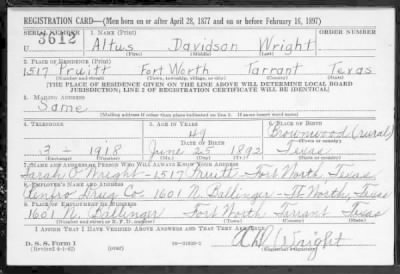 REGISTRATION CARD—(Men born on or after April 28, 1877 and on or before February 16, 1897)
SERIAL NUMBER 1. NAME (Print) ORDER NUMBER
3612 Altus Davidson Wright
(First) (Middle) (Last)
2. PLACE OF RESIDENCE (Print)
1517 Pruitt Fort Worth Tarrant Texas
(Number and street) (Town, township, village, or city) (County) (State)
[THE PLACE OF RESIDENCE GIVEN ON THE LINE ABOVE WILL DETERMINE LOCAL BOARD
JURISDICTION; LINE 2 OF REGISTRATION CERTIFICATE WILL BE IDENTICAL]
3. MAILING ADDRESS
Same
[Mailing address if other than place indicated on line 2. If same insert word same]
4. TELEPHONE 5. AGE IN YEARS 6. PLACE OF BIRTH
49 Brownwood (rural)
DATE OF BIRTH (Town or county)
3 - 1918 June 25 1892 Texas
(Exchange) (Number) (Mo.) (Day) (Yr.) (State or country)
7. NAME AND ADDRESS OF PERSON WHO WILL ALWAYS KNOW YOUR ADDRESS
Sarah O. Wright - 1517 Pruitt - Fort Worth, Texas
8. EMPLOYER'S NAME AND ADDRESS
Renfro Drug Co. 1601 N. Ballinger - Ft. Worth, Texas
9. PLACE OF EMPLOYMENT OR BUSINESS
1601 N. Ballinger Fort Worth Tarrant Texas
(Number and street or R. F. D. number) (Town) (County) (State)
I AFFIRM THAT I HAVE VERIFIED ABOVE ANSWERS AND THAT THEY ARE TRUE.
D. S. S. Form 1
(Revised 4-1-42) (over)
A D Wright
(Registrant's signature)